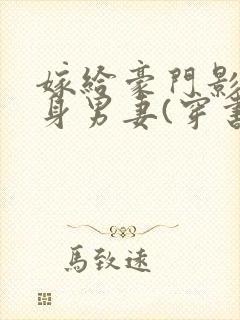 嫁給豪門影
身男妻(穿書
馬致遠